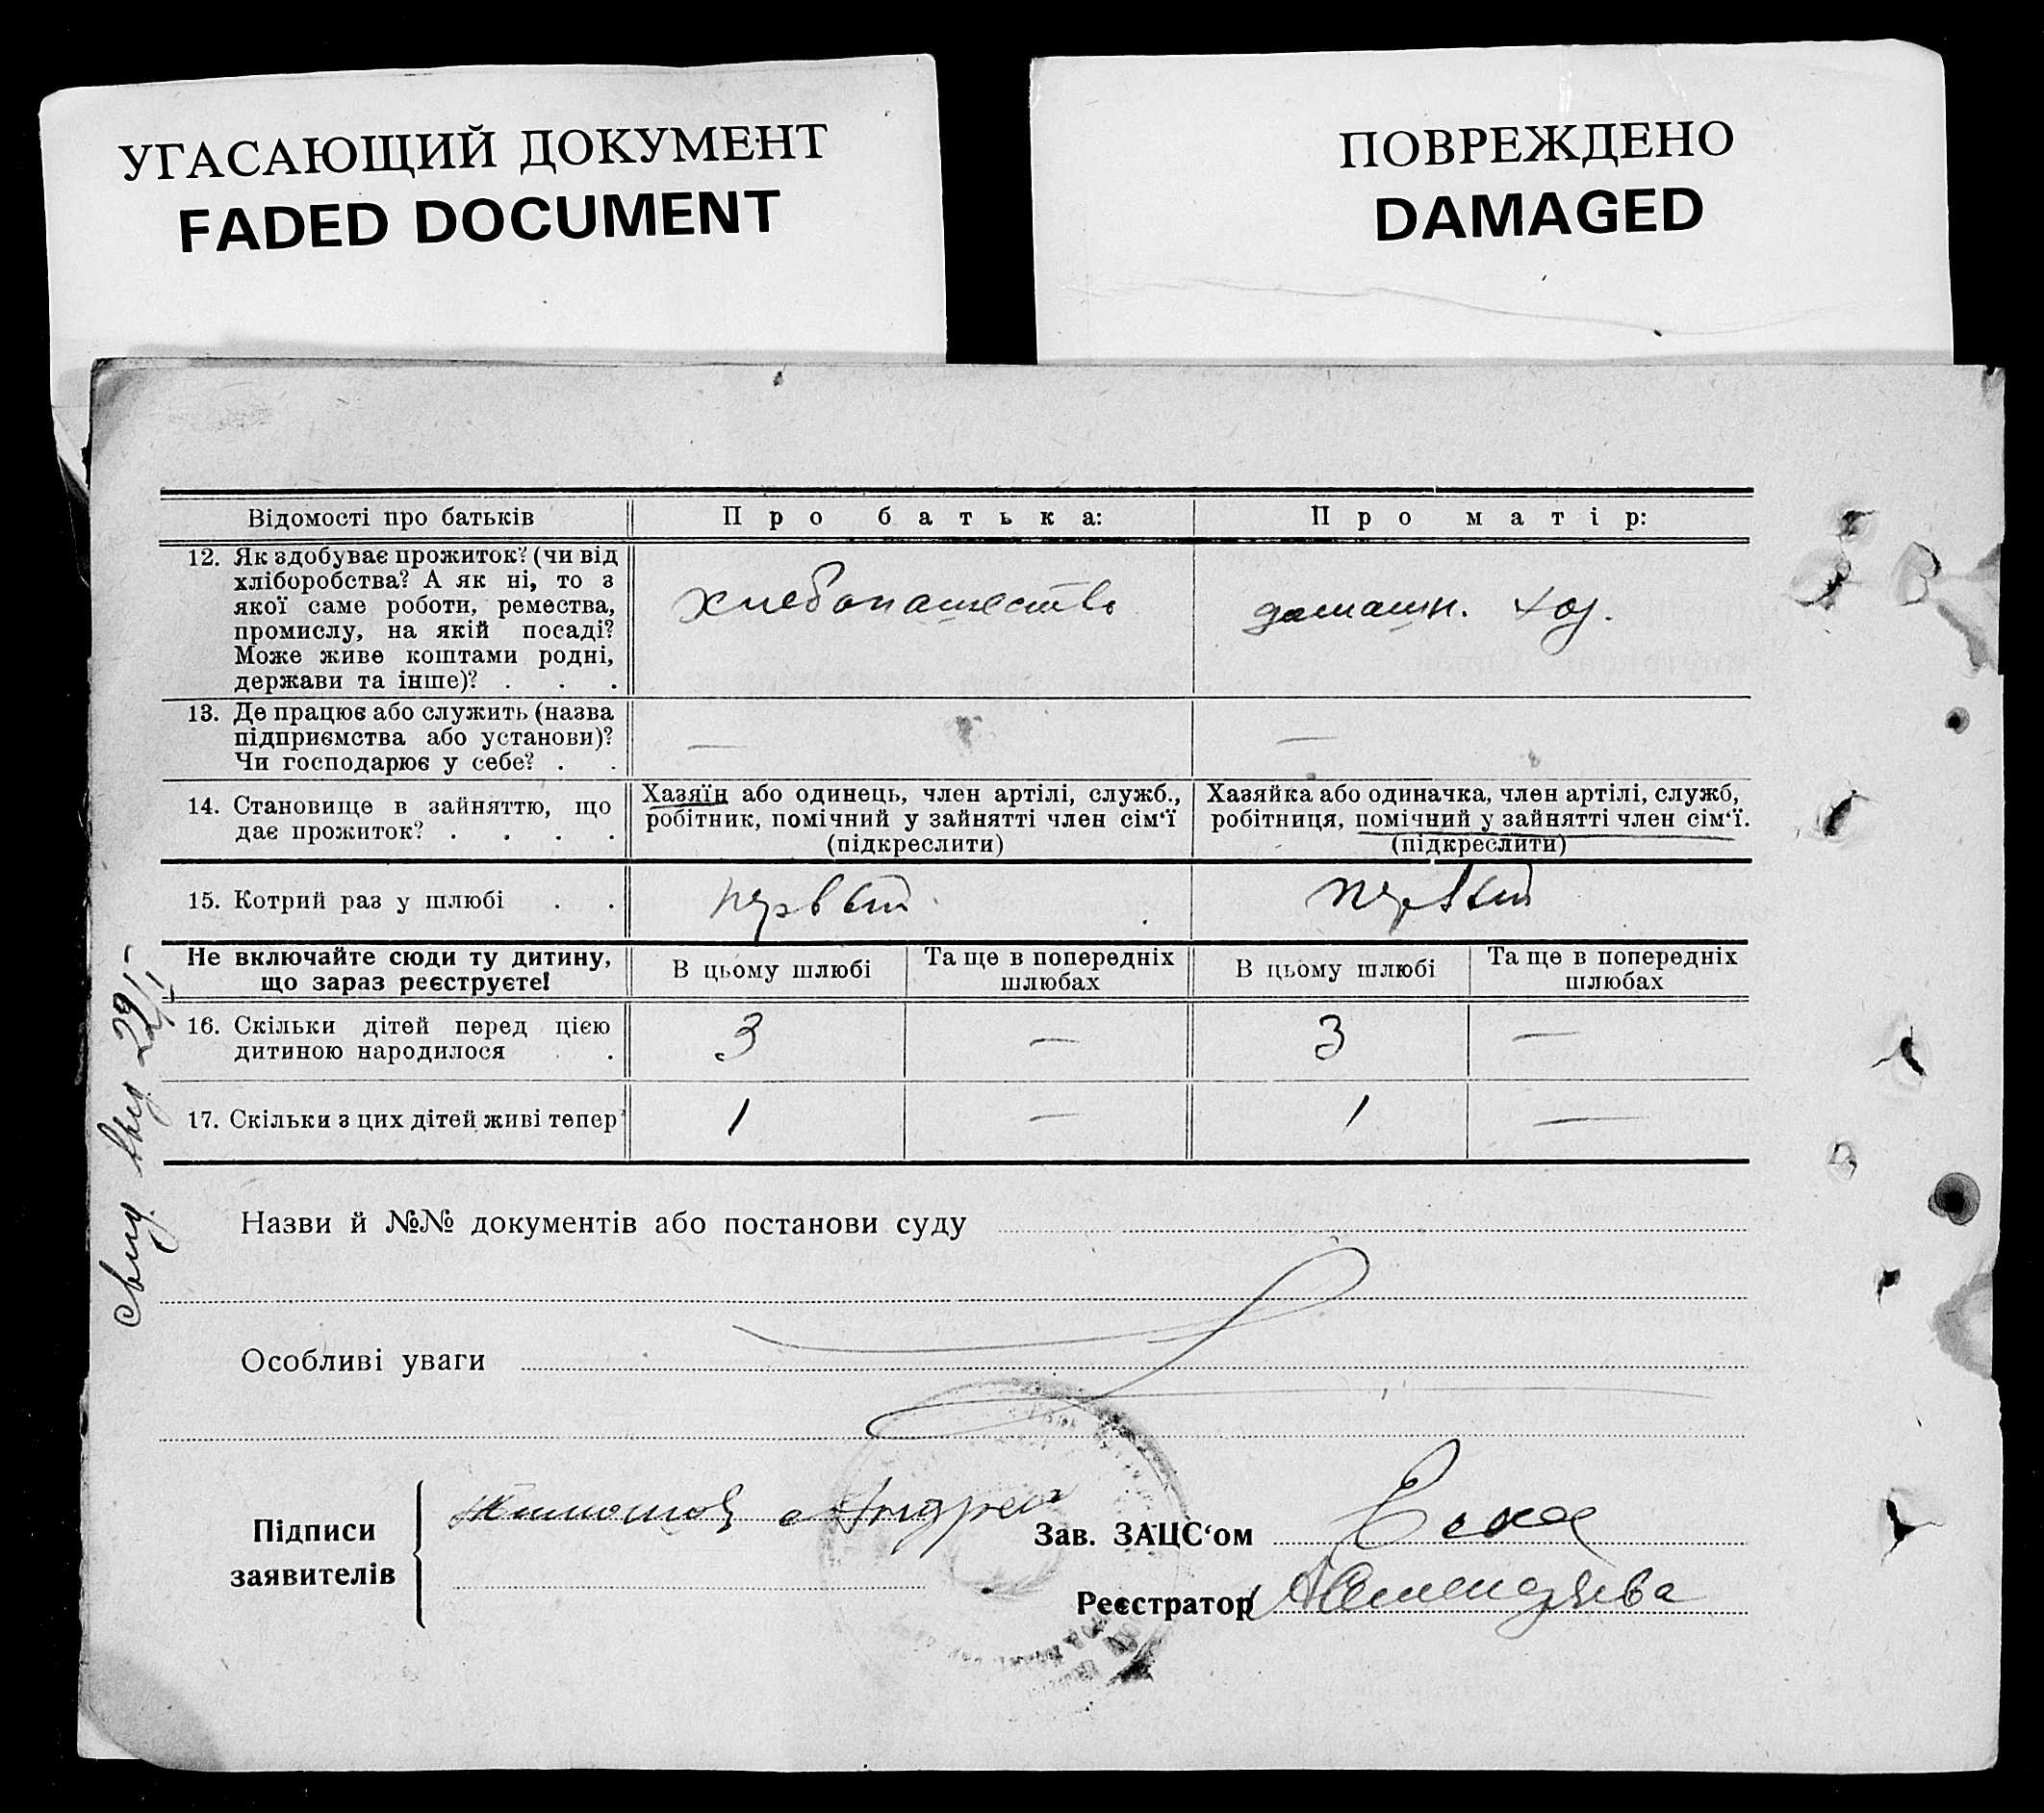 УГАСАЮЩИЙ ДОКУМЕНТ
FADED DOCUMENT
ПОВРЕЖДЕНО
DAMAGED
Відомості про батьків
Про батька:
Про матір:
12. Як здобуває прожиток? (чи від
хліборобства? А як ні, то з
якої саме роботи, ремества,
промислу, на якій посаді?
Може живе коштами родні,
держави та інше)? . . .
хлебопашество
домашн. хоз.
13. Де працює або служить (назва
підприємства або установи)?
Чи господарює у себе? . .
—
—
14. Становище в зайняттю, що
дає прожиток? . . . .
Хазяїн або одинець, член артілі, служб.,
робітник, помічний у зайнятті член сім‘ї
(підкреслити)
Хазяйка або одиначка, член артілі, служб,
робітниця, помічний у зайнятті член сім‘ї.
(підкреслити)
15. Котрий раз у шлюбі . .
первый
первый
Не включайте сюди ту дитину,
що зараз реєструєте!
В цьому шлюбі
Та ще в попередніх
шлюбах
В цьому шлюбі
Та ще в попередніх
шлюбах
16. Скільки дітей перед цією
дитиною народилося . .
3
—
3
—
17. Скільки з цих дітей живі тепер
1
—
1
—
Назви й №№ документів або постанови суду
Особливі уваги
Підписи
заявителів
Андрей
Зав. ЗАЦС‘ом
Реєстратор
свид. выд. 29/I